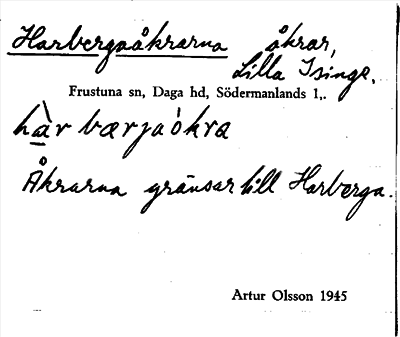 Harbergaåkrarna åkrar,
Lilla Isinge.
Frustuna sn, Daga hd, Södermanlands l,.
hàr bærjaókra
Åkrarna gränsar till Harberga.
Artur Olsson 1945